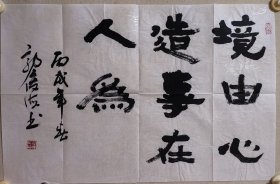 境由心
造事在
人為
丙戌年春
郭俊海书